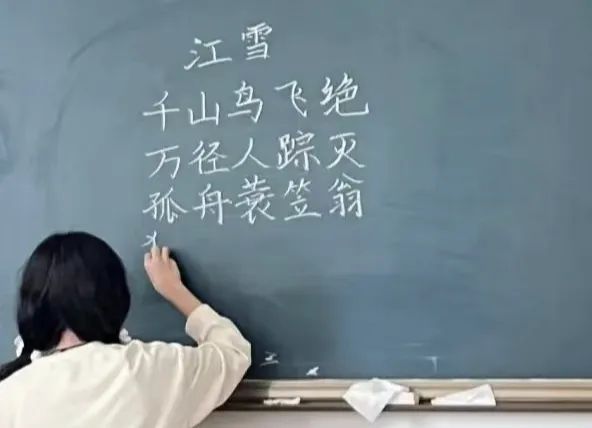 江雪
千山鸟飞绝
万径人踪灭
孤舟蓑笠翁